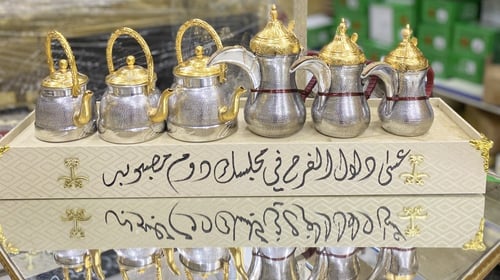 عسى دلول الفرح في مجلسك دوم مصبوبه